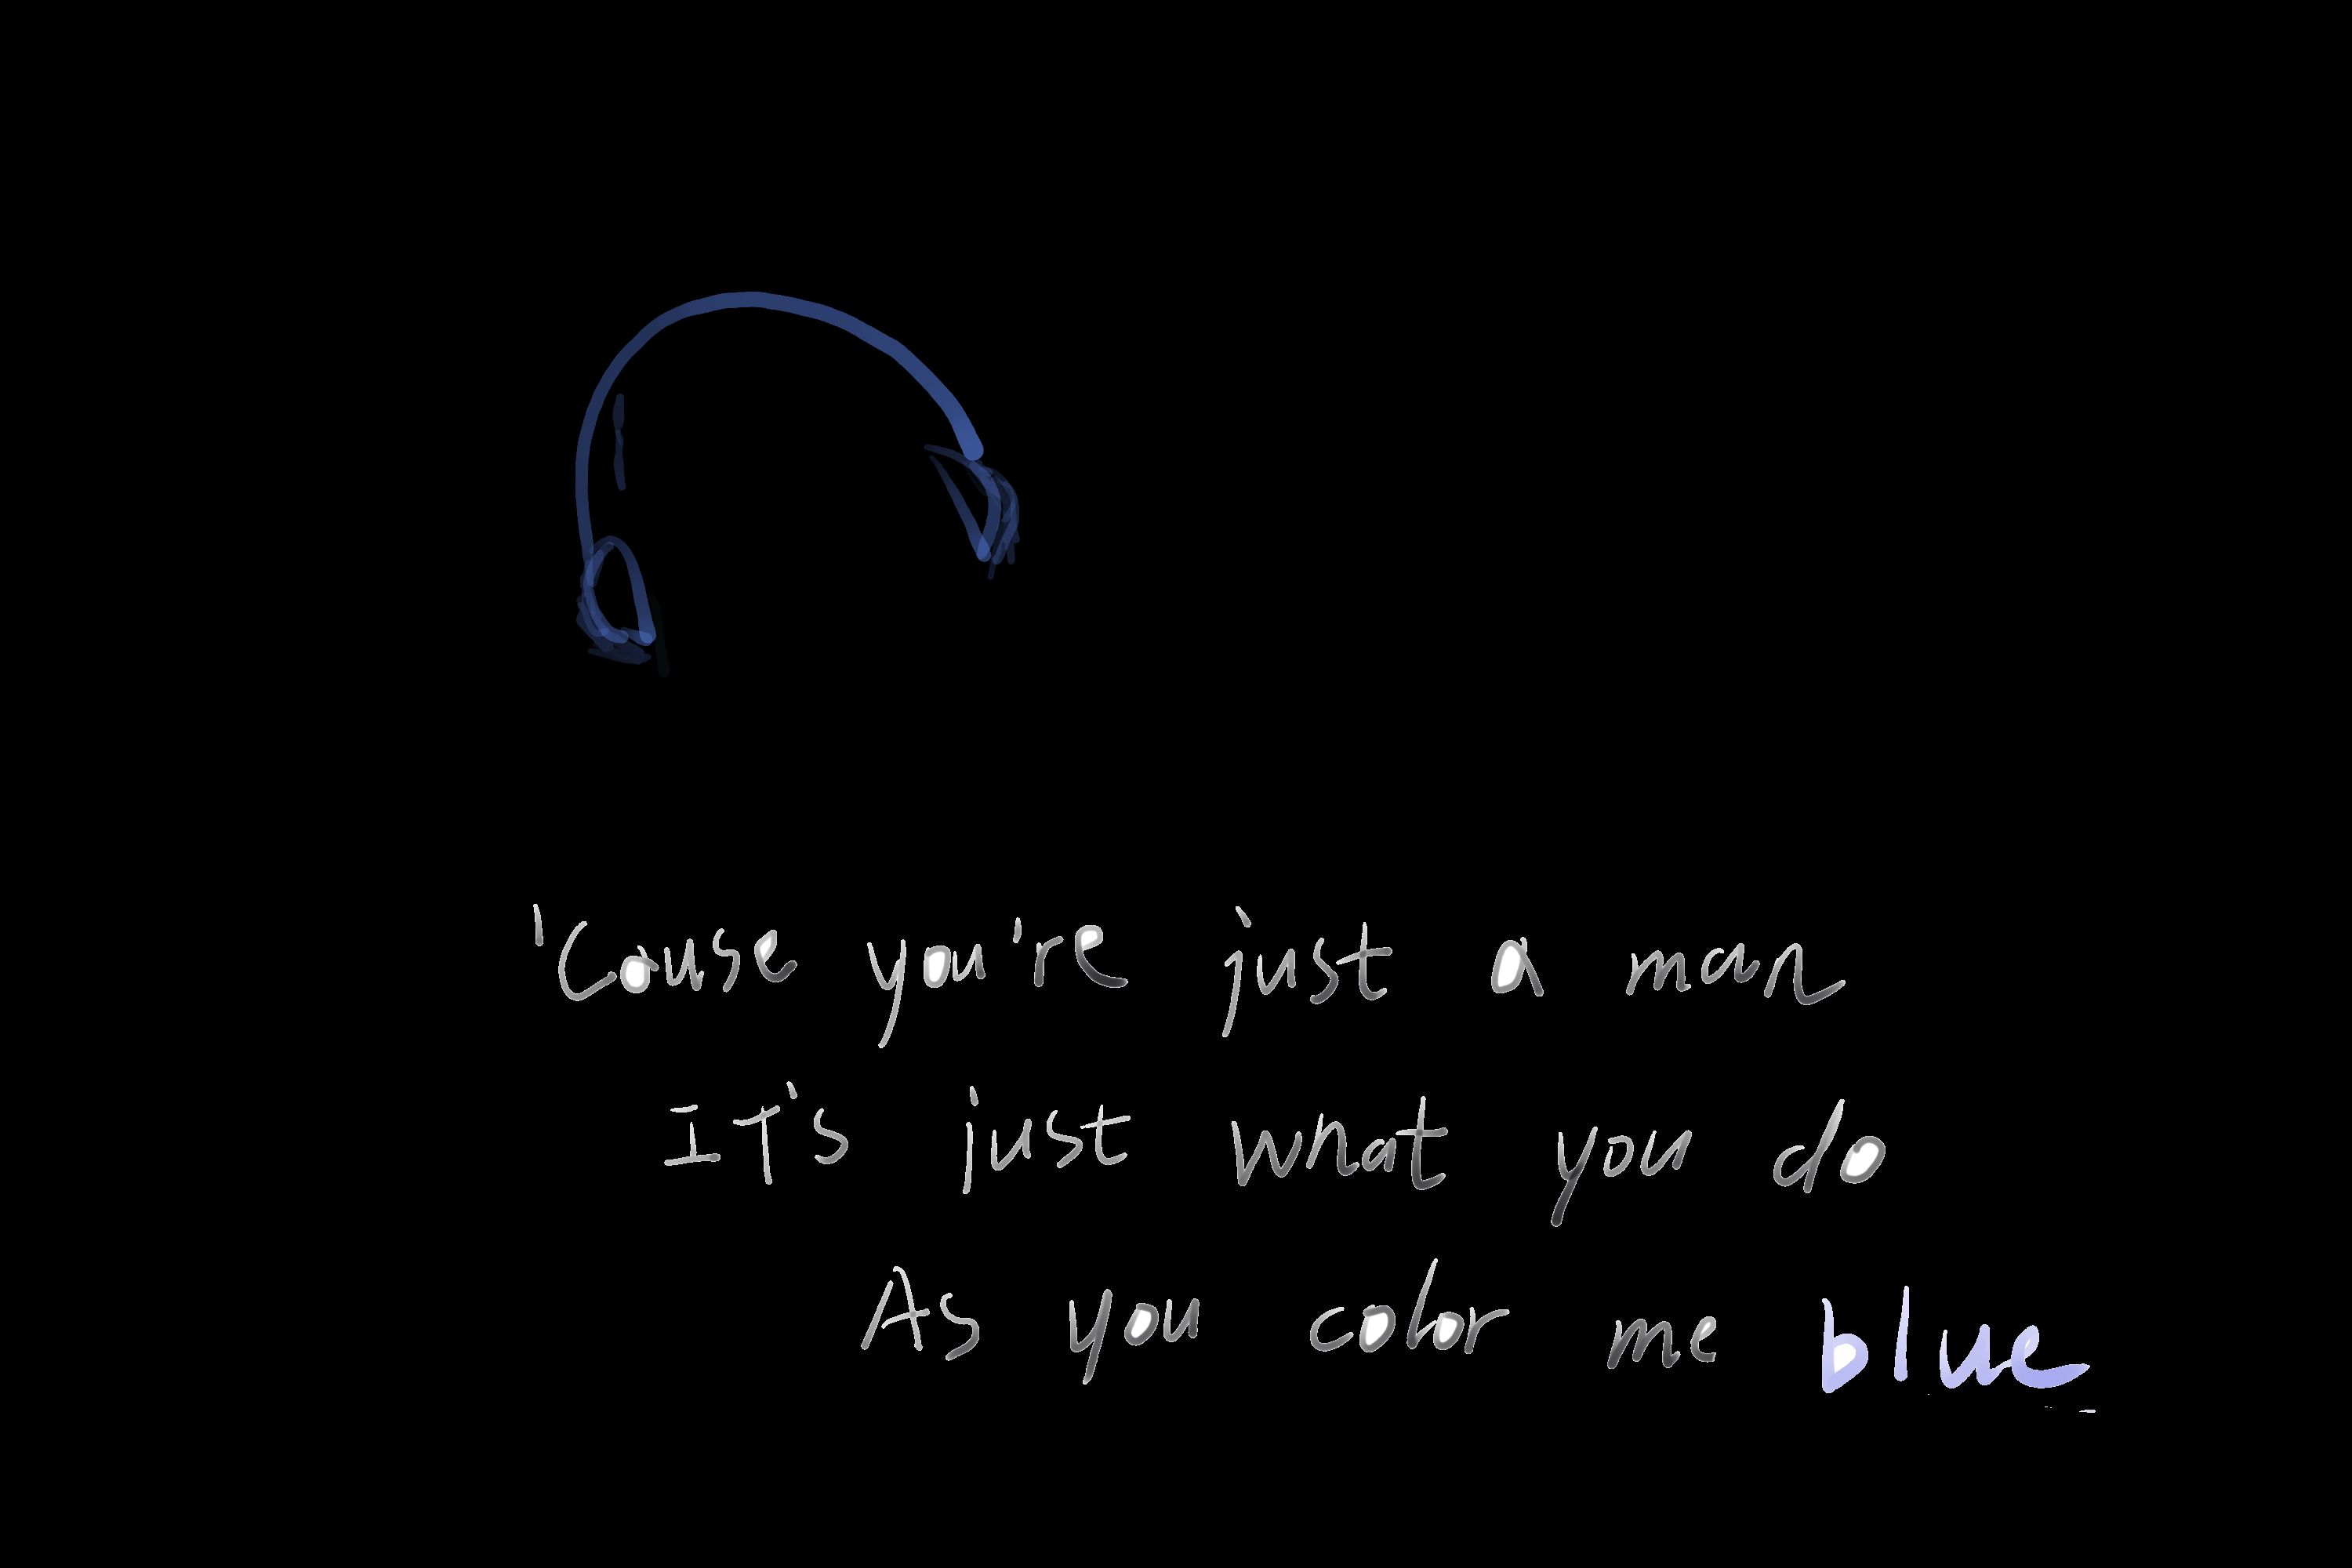 'Cause you're just a man
IT's just what you do
As you color me blue